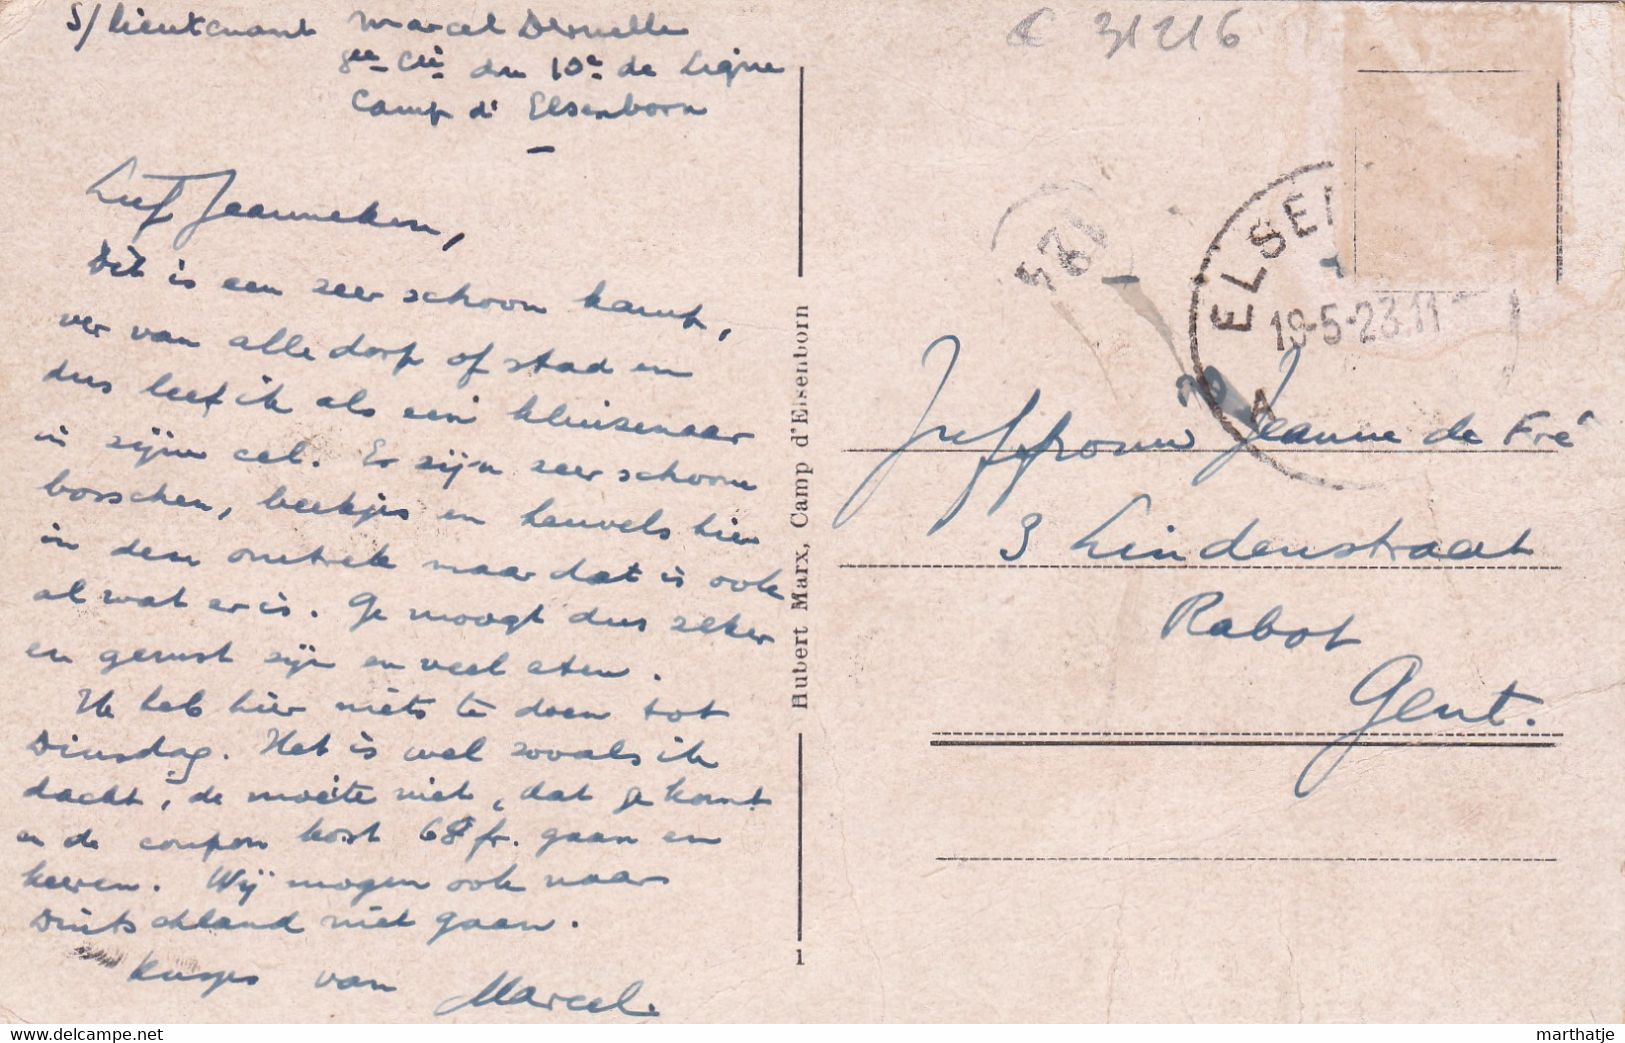 S/Lieutenant Marcel
8ee Cie du 10e de Ligne
Camp d' Elsenborn
Lief Jeanneken,
Dit is een zeer schoon kamp,
ver van alle dorp of stad en
dus leef ik als een kluisenaar
in zijne cel. Er zijn zeer schoone
bosschen, beekjes en heuvels hier
in den omtrek maar dat is ook
al wat er is. Ge moogt dus zeker
en gerust zijn en veel eten.
Ik heb hier niets te doen tot
Dinsdag. Het is wel zooals ik
dacht, de moeite niet, dat ge komt
en de coupon kost 68 fr. gaan en
keeren. Wij mogen ook naar
Duitschland niet gaan.
Kusjes van Marcel.
Hubert Marx, Camp d'Elsenborn
1
31216
124
ELSEN
19-5-23.11
A
Juffrouw Jeanne de Fré
3 Lindenstraat
Rabot
Gent.
delcampe.net
marthatje